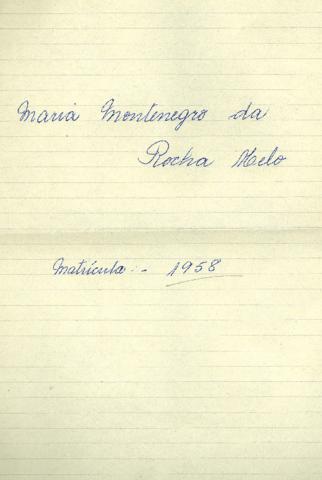 Maria Montenegro da
Rocha Melo
Matrícula:- 1958